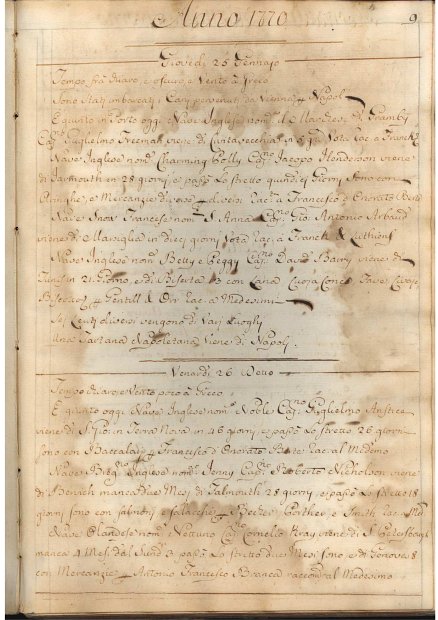 Anno 1770
9
Giovedì 25 Gennajo
Tempo frà chiaro, e oscuro e Vento à Greco
Sono stati imbarcati i Cari pervenuti da Vienna Napoli
È giunto in Porto oggi Nave Inglese nom.ª Il Marchese di Granby
Cap.no Guglielmo Freemah viene di Civitavecchia in 5 g.ni Vota Rac. a Franck
Nave Inglese nom.ª Charming Polly Cap.no Jacopo Henderson viene
di Yarmouth en 28 giorni, e passò lo stretto quindici Giorni Sono con
Aringhe, e Mercanzie diverse diversi Rac. a Francesco d'Onorato Berte
Nave Snow Francese nom.ª S. Anna Cap.no Gio: Antonio Arbaud
viene di Marsiglia in dieci giorni Vota Rac. a Franck &
Nave Inglese nom.ª Betty e Peggy Cap.no David Barry viene di
Tunis in 21 Giorno, e di Biserta 13 con Lana Cuoja Conce Fave
Gentill & Orr Rac. a Medesimi
Sei Leuti diversi vengono di Varj Luoghi
Una Tartana Napoletana Viene di Napoli.
Venerdì 26 Detto
Tempo chiaro e Vento poco à Greco
È giunto oggi Nave Inglese nom.ª Noble Cap.no Guglielmo Anstice
viene di S. Gio: in Terra Nova in 46 giorni, e passò Lo stretto 26 giorni
sono con Baccalari Francesco d'Onorato Berte Rac. al Medemo
Nave Brig.no Inglese nom.ª Jenny Cap.no Roberto Nicholson viene
di Berwich manca due Mesi di Falmouth 28 giorni, e passò Lo stretto 18
giorni sono con salmoni e salacche Porther e Smith Rac. a Med.
Nave Olandese nom.ª Nettuno Cap.no Cornelio Kray viene di S. Petersbourg
manca 4 Mesi dal Sund 3 passò Lo stretto due Mesi sono, e di Genova 8
con Mercanzie Antonio Francesco Branco raccom. al Medesimo